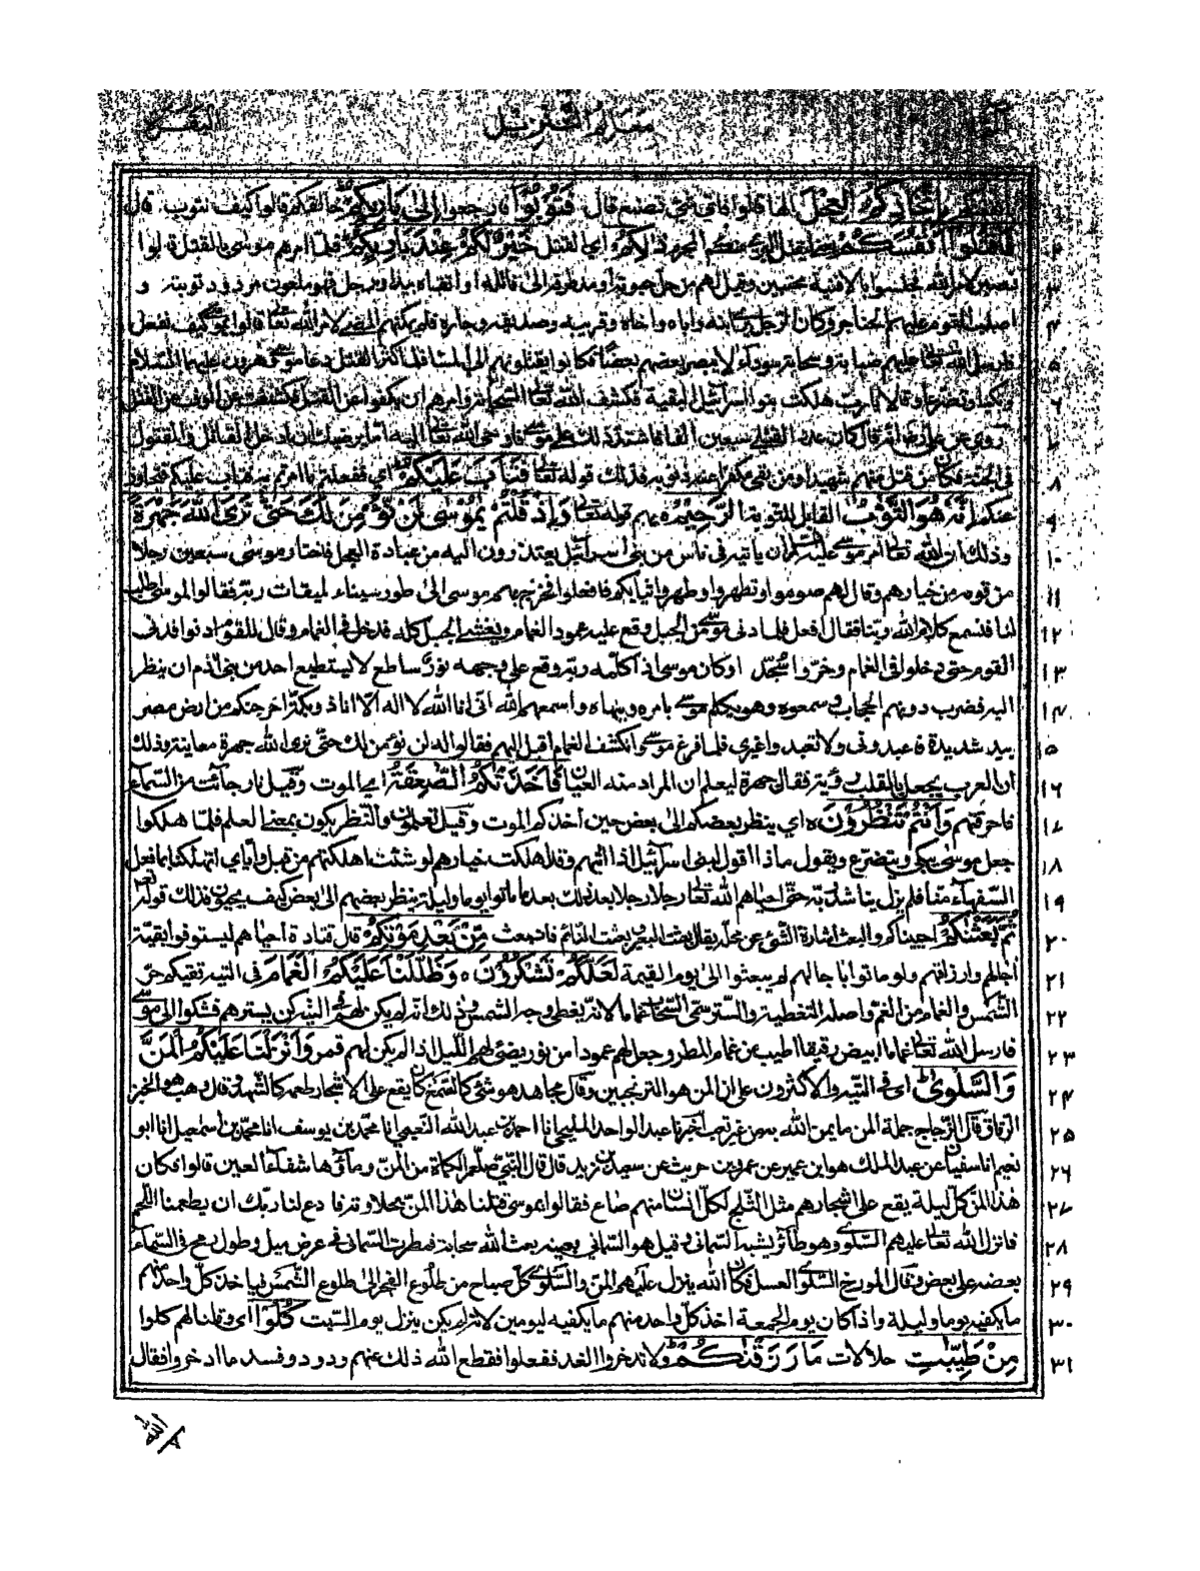 معالم التنزيل البقرة
باتخاذكم العجل إلها قالوا فأي شئ نصنع قال فتوبوا فارجعوا إلى بارئكم خالقكم قالوا كيف نتوب قال
فاقتلوا أنفسكم ليقتل البرئ منكم المجرم ذلكم أي القتل خير لكم عند بارئكم فلما أمرهم موسى بالقتل قالوا
نصبر لأمر الله فجلسوا بالأفنية محتبين وقيل لهم من حل حبوته أو مد طرفه إلى قاتله أو اتقاه بيد أو رجل فهو ملعون مردود توبته و
اصلت القوم عليهم الخناجر وكان الرجل يرى ابنه وأباه وأخاه وقريبه وصديقه وجاره فلم يمكنهم المضي لأمر الله تعالى قالوا يا موسى كيف نفعل
فارسل الله تعالى عليهم ضبابة وسحابة سوداء لا يبصر بعضهم بعضا فكانوا يقتلونهم إلى المساء فلما كثر القتل دعا موسى وهرون عليهما السلام
وبكيا وتضرعا وقالا يا رب هلكت بنوا اسرائيل البقية البقية فكشف الله تعالى السحابة وامرهم ان يكفوا عن القتل فكشفت عن ألوف من القتلى
روي عن علي رض انه قال كان عدد القتلى سبعين ألفا فاشتد ذلك على موسى فأوحى الله تعالى إليه أما يرضيك ان أدخل القاتل والمقتول
في الجنة فكان من قتل منهم شهيدا ومن بقي مكفرا عنه ذنوبه فذلك قوله تعالى فتاب عليكم أي ففعلتم ما أمرتم به فتاب عليكم فتجاوز
عنكم إنه هو التواب القابل للتوبة الرحيم ه بهم قوله تعالى وإذ قلتم يموسى لن نؤمن لك حتى نرى الله جهرة
وذلك ان الله تعالى أمر موسى عليه السلام ان يأتيه في ناس من بنى اسرائيل يعتذرون اليه من عبادة العجل فاختار موسى سبعين رجلا
من قومه من خيارهم وقال لهم صوموا وتطهروا وطهروا ثيابكم ففعلوا فخرج بهم موسى الى طور سيناء لميقات ربه فقالوا لموسى اطلب
لنا نسمع كلام الله ربنا فقال افعل فلما دنى موسى من الجبل وقع عليه عمود الغمام وتغشى الجبل كله فدخل في الغمام وقال للقوم ادنوا فدنى
القوم حتى دخلوا في الغمام وخروا سجدا وكان موسى اذا كلمه ربه وقع على وجهه نور ساطع لا يستطيع احد من بنى آدم ان ينظر
اليه فضرب دونهم الحجاب وسمعوه وهو يكلم موسى يامره وينهاه واسمعهم الله انى انا الله لا اله الا انا ذو بكة اخرجتكم من ارض مصر
بيد شديدة فاعبدونى ولا تعبدوا غيري فلما فرغ موسى وانكشف الغمام اقبل اليهم فقالوا له لن نؤمن لك حتى نرى الله جهرة معاينة وذلك
ان العرب يجعل العلم بالقلب رؤية فقال جهرة ليعلم ان المراد منه العيان فأخذتكم الصعقة اي الموت وقيل نار جاءت من السماء
فاحرقتهم وأنتم تنظرون ه اي ينظر بعضكم الى بعض حين اخذكم الموت وقيل تعلمون والنظر يكون بمعنى العلم فلما هلكوا
جعل موسى يبكي ويتضرع ويقول ماذا اقول لبنى اسرائيل اذا اتيتهم وقد اهلكت خيارهم لو شئت اهلكتهم من قبل واياي اتهلكنا بما فعل
السفهاء منا فلم يزل يناشد ربه حتى احياهم الله تعالى رجلا رجلا بعد ذلك بعد ما ماتوا يوما وليلة ينظر بعضهم الى بعض كيف يحيون فذلك قوله تعالى
ثم بعثنكم احييناكم والبعث اثارة الشئ عن محله يقال بعثت البعير وبعثت النائم فانبعث من بعد موتكم قال قتادة احياهم ليستوفوا بقية
آجالهم وارزاقهم ولو ماتوا بآجالهم لم يبعثوا الى يوم القيمة لعلكم تشكرون ه وظللنا عليكم الغمام في التيه تقيكم حر
الشمس والغمام من الغم واصله التغطية والستر وسمي السحاب غماما لانه يغطى وجه الشمس وذلك انه لم يكن لهم في التيه كن يسترهم فشكوا الى موسى
فارسل الله تعالى غماما ابيض رقيقا اطيب من غمام المطر وجعل لهم عمودا من نور يضئ لهم الليل اذا لم يكن لهم قمر وأنزلنا عليكم المن
والسلوى اى في التيه والاكثرون على ان المن هو الترنجبين وقال مجاهد هو شئ كالصمغ كان يقع على الاشجار طعمه كالشهد وقال وهب هو الخبز
الرقاق قال الزجاج جملة المن ما يمن الله به من غير تعب اخبرنا عبد الواحد المليحي انا احمد بن عبد الله النعيمي انا محمد بن يوسف انا محمد بن اسمعيل انا ابو
نعيم انا سفيان عن عبد الملك هو ابن عمير عن عمرو بن حريث عن سعيد بن زيد قال قال النبي صلعم الكماة من المن وماؤها شفاء العين قالوا فكان
هذا المن كل ليلة يقع على اشجارهم مثل الثلج لكل انسان منهم صاع فقالوا يا موسى قتلنا هذا المن بحلاوته فادع لنا ربك ان يطعمنا اللحم
فانزل الله تعالى عليهم السلوى وهو طائر يشبه السمانى وقيل هو السمانى بعينه بعث الله سحابة فمطرت السمانى في عرض ميل وطول رمح في السماء
بعضه على بعض وقال المورخ السلوى العسل فكان الله ينزل عليهم المن والسلوى كل صباح من طلوع الفجر الى طلوع الشمس فياخذ كل واحد منهم
ما يكفيه يوما وليلة واذا كان يوم الجمعة اخذ كل واحد منهم ما يكفيه ليومين لانه لم يكن ينزل يوم السبت كلوا اى وقلنا لهم كلوا
من طيبت حلالات ما رزقنكم ولا تدخروا لغد ففعلوا فقطع الله ذلك عنهم ودود وفسد ما ادخروا فقال